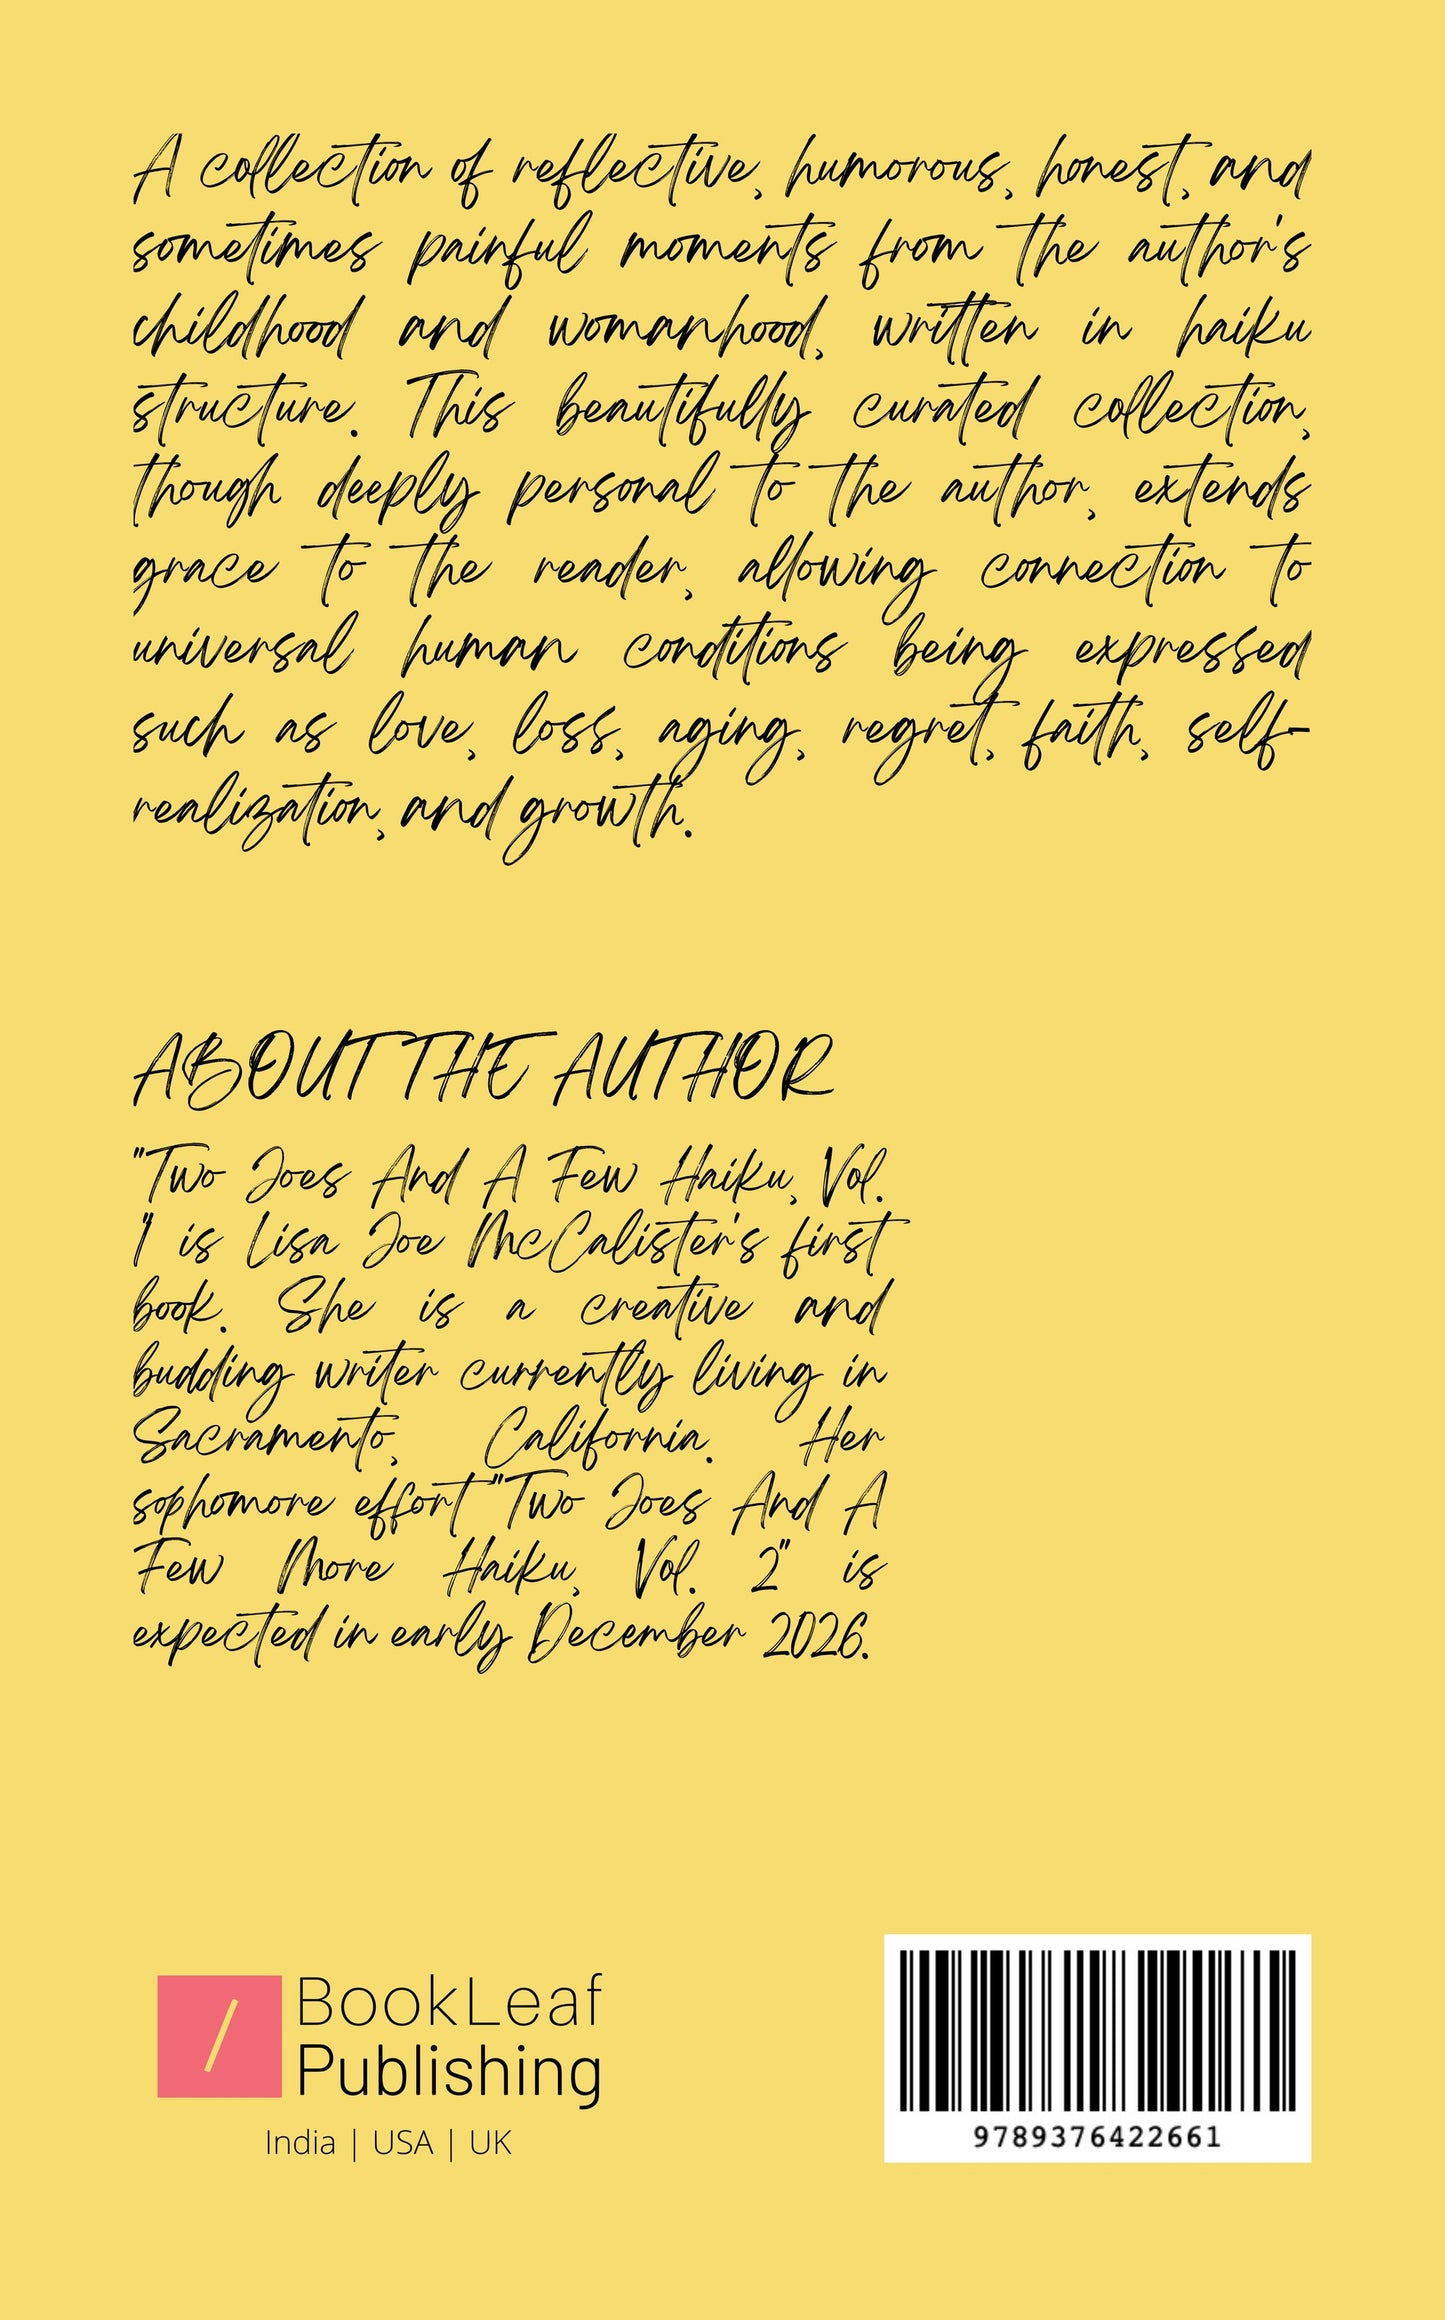 A collection of reflective, humorous, honest, and
sometimes painful moments from the author's
childhood and womanhood, written in haiku
structure. This beautifully curated collection,
though deeply personal to the author, extends
grace to the reader, allowing connection to
universal human conditions being expressed
such as love, loss, aging, regret, faith, self-
realization, and growth.
ABOUT THE AUTHOR
"Two Joes And A Few Haiku, Vol.
1" is Lisa Joe McCalister's first
book. She is a creative and
budding writer currently living in
Sacramento, California. Her
sophomore effort "Two Joes And A
Few More Haiku, Vol. 2" is
expected in early December 2026.
BookLeaf
Publishing
India | USA | UK
9789376422661